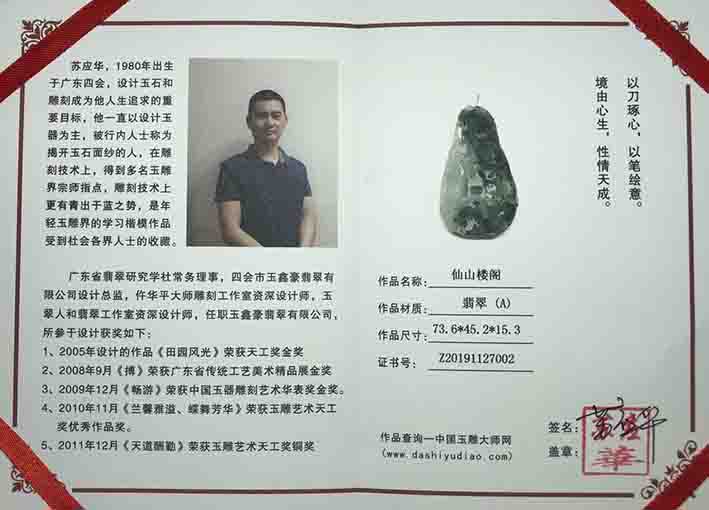 苏应华，1980年出生
于广东四会，设计玉石和
雕刻成为他人生追求的重
要目标，他一直以设计玉
器为主，被行内人士称为
揭开玉石面纱的人，在雕
刻技术上，得到多名玉雕
界宗师指点，雕刻技术上
更有青出于蓝之势，是年
轻玉雕界的学习楷模作品
受到社会各界人士的收藏。
广东省翡翠研究学社常务理事，四会市玉鑫豪翡翠有
限公司设计总监，仵华平大师雕刻工作室资深设计师，玉
翠人和翡翠工作室资深设计师，任职玉鑫豪翡翠有限公司，
所参于设计获奖如下：
1、2005年设计的作品《田园风光》荣获天工奖金奖
2、2008年9月《搏》荣获广东省传统工艺美术精品展金奖
3、2009年12月《畅游》荣获中国玉器雕刻艺术华表奖金奖。
4、2010年11月《兰馨雅溢、蝶舞芳华》荣获玉雕艺术天工
奖优秀作品奖。
5、2011年12月《天道酬勤》荣获玉雕艺术天工奖铜奖
以刀琢心，以笔绘意。
境由心生，性情天成。
作品名称：仙山楼阁
作品材质：翡翠（A）
作品尺寸：73.6*45.2*15.3
证书号：Z20191127002
作品查询—中国玉雕大师网
(www.dashiyudiao.com)
签名：苏应华
盖章：